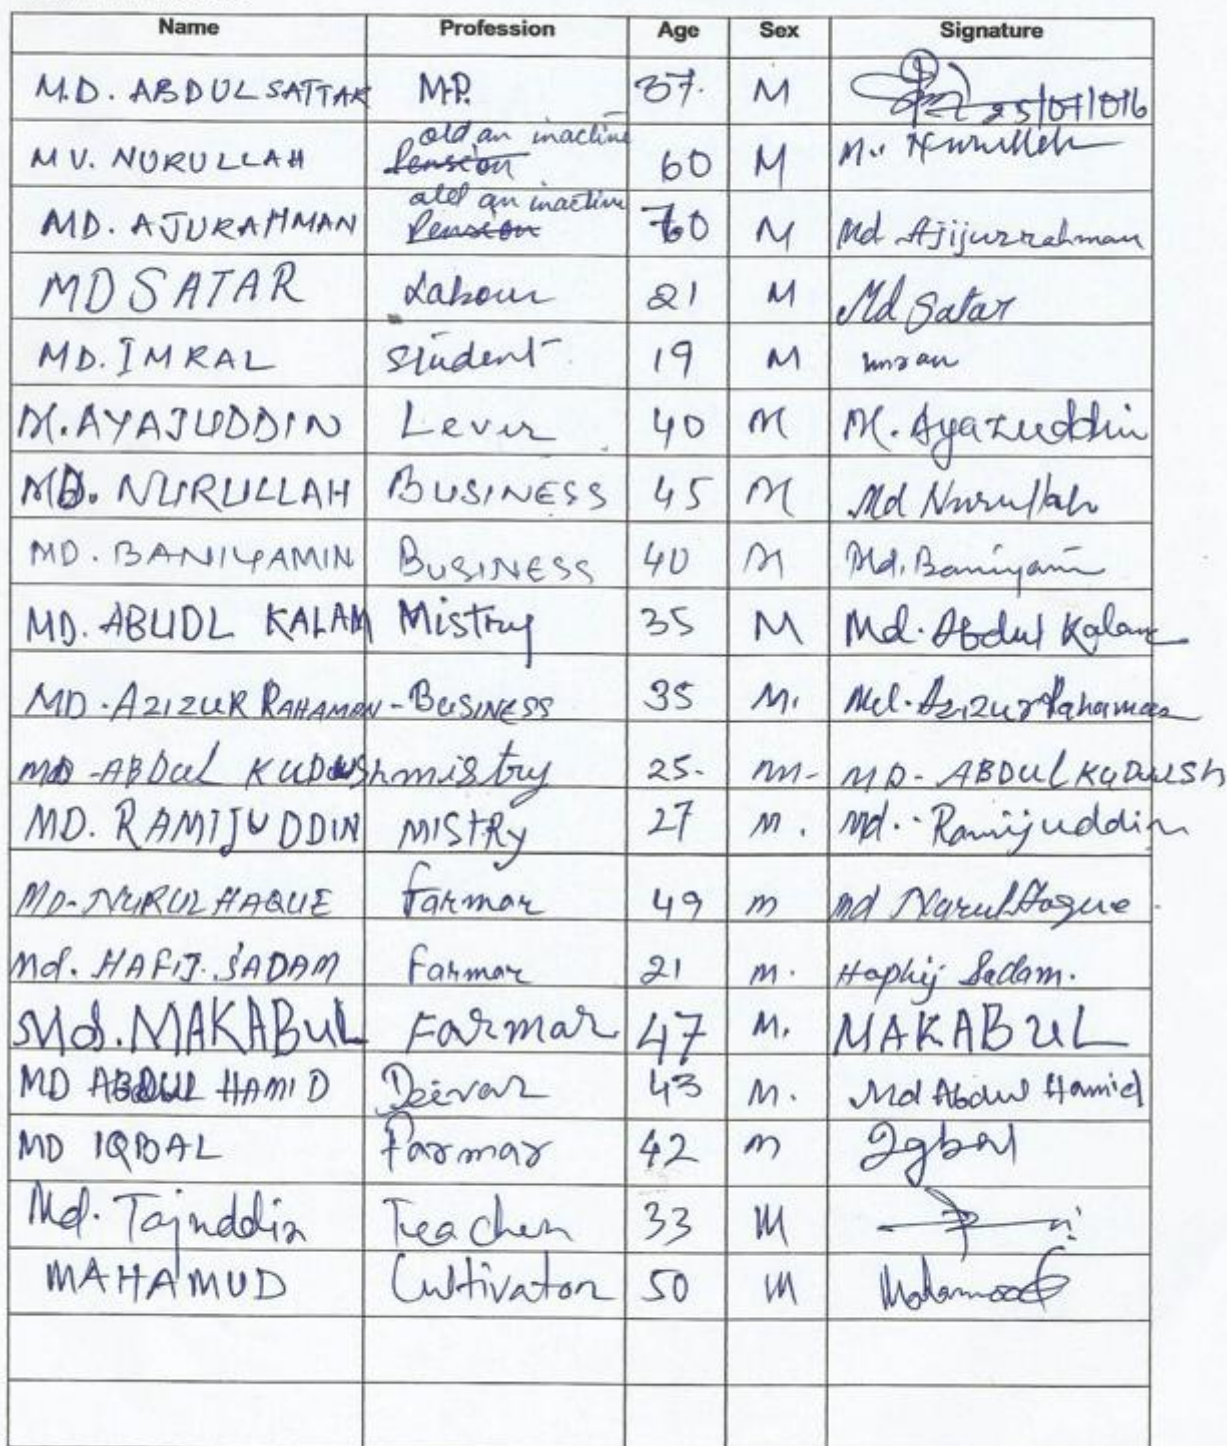 Name Profession Age Sex Signature
M.D. ABDUL SATTAR M.P. 37. M 25/07/016
MV. NURULLAH old an inactive Pension 60 M Mv Nurullah
MD. AJURAHMAN old an inactive Pension 70 M Md Ajijurrahman
MD SATAR Labour 21 M Md Satar
MD. IMRAL Student 19 M imran
M. AYAJUDDIN Lever 40 M M. Ayazuddin
MD. NURULLAH BUSINESS 45 M Md Nurullah
MD. BANIYAMIN BUSINESS 40 M Md. Baniyamin
MD. ABUDL KALAM Mistry 35 M Md. Abdul Kalam
MD. AZIZUR RAHAMAN - BUSINESS 35 M. Md. Azizur Rahaman
MD - ABDUL KUDUSH mistry 25. m- MD- ABDUL KUDUSH
MD. RAMIJUDDIN MISTRY 27 m. Md. Ramijuddin
MD- NURUL HAQUE Farmar 49 m md Narul Haque
Md. HAFIJ. SADAM Farmar 21 m. Haphij Sadam.
Md. MAKABUL Farmar 47 M. MAKABUL
MD ABDUL HAMID 43 M. Md Abdul Hamid
MD IQBAL Farmar 42 m Iqbal
Md. Tajuddin Teacher 33 M
MAHAMUD Cultivator 50 M Mahamood